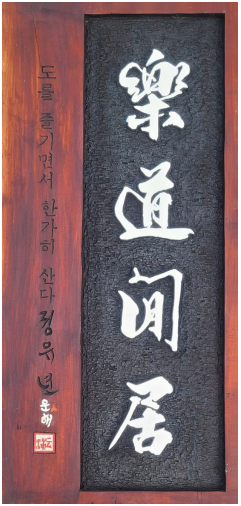 樂道閒居
도를 즐기면서 한가히 산다 정유년
운해